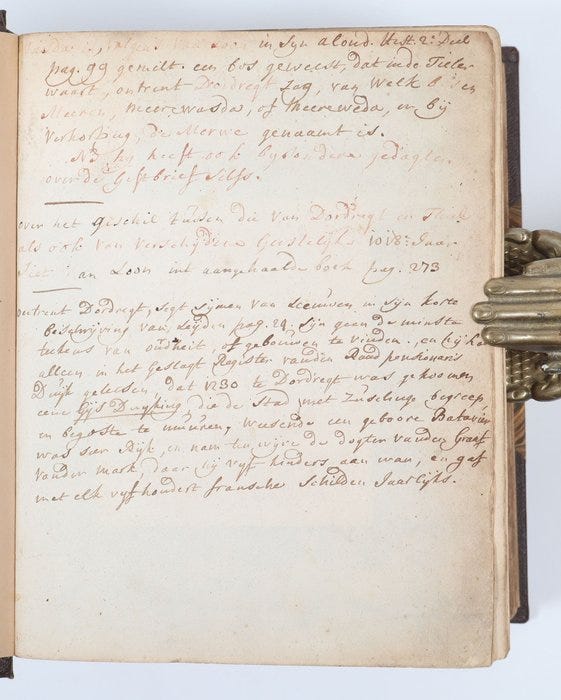 in Syn aloud. Hist. 2e Deel
pag. 99 gemelt. een bos geweest, dat inde Tieler
waart, ontrent Dordregt Zag, van Welk b en
Meeren, meerewasda, of Meereweda, en bij
Verkorting, de Merwe genaamt is.
NB hy heeft ook bysondere gedagten
over de Giftbrief selfs.
over het geschil tussen die van Dordregt en
als ook van verscheydene Geestelyke 1018: Jaar
an Loon int aangehaalde boek pag. 273
ontrent Dordregt, segt Simon van Leeuwen in Syn korte
beschryving van Leyden pag. 29. Syn geen de minste
tekens van oudheit, of gebouwen te vinden, en hy
alleen in het geslagt Register vanden Raad pensionaris
Duyk gelesen, dat 1230 te Dordregt was gekoomen
eene Gijs Duyking die de Stad met begreep
en begoste te muuren, wesende een geboore Batavier
was seer Rijk, en nam ten wijve de dogter vanden Graef
vander mark, daar hij vyf kinders aan wan, en gaf
met elk vyfhondert fransche Schilden Jaarlijks.